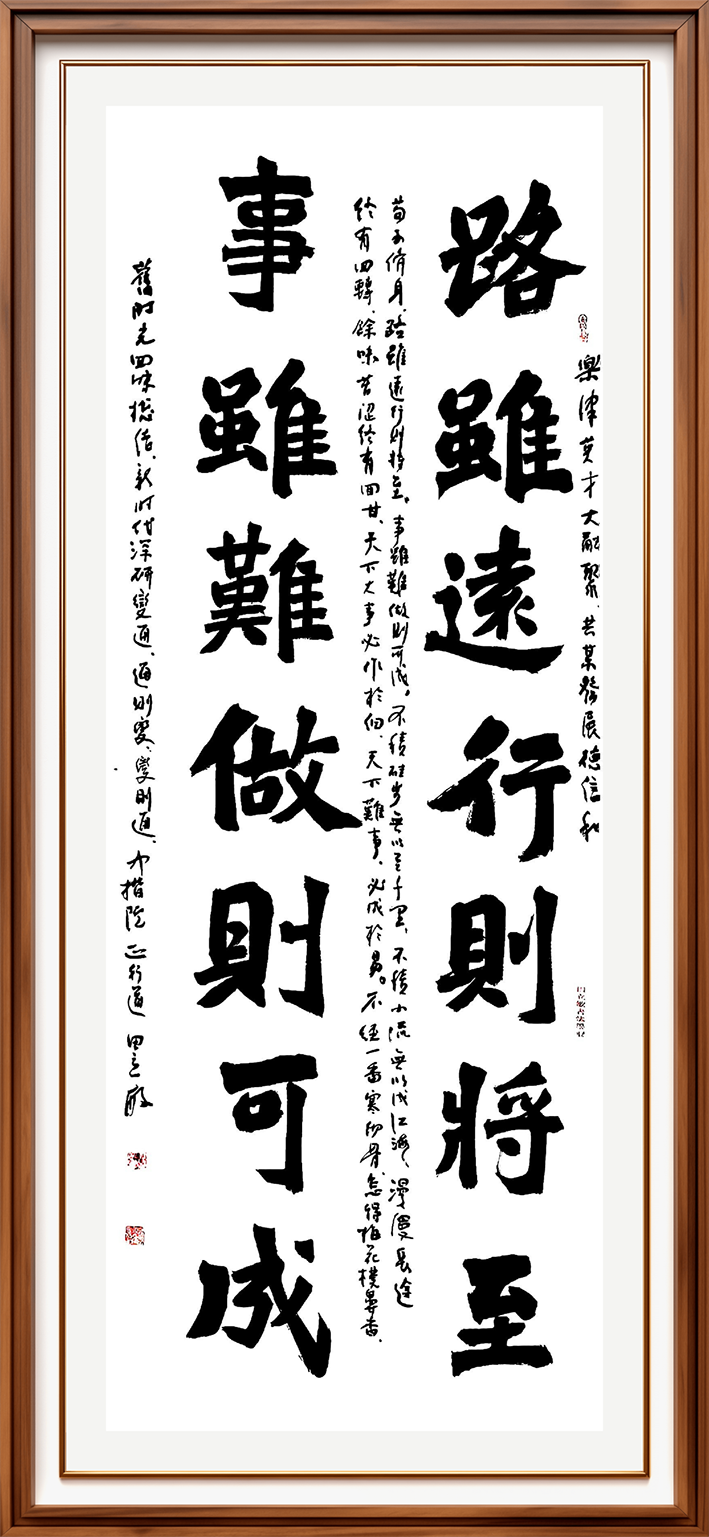 樂津英才大融聚、共某發展德信和
路雖遠行則將至
荀子脩身、路雖遠行則將至。事雖難做則可成。不積硅步無以至千里、不積小流無以成江海、漫漫長途
終有回轉、餘味苦澀終有回甘、天下大事必作於細、天下難事、必成於易。不經一番寒徹骨、怎得梅花樸鼻香、
事雖難做則可成
舊时光回味總结、新时代深研變通、通则變、變则通、正行道 田立敏